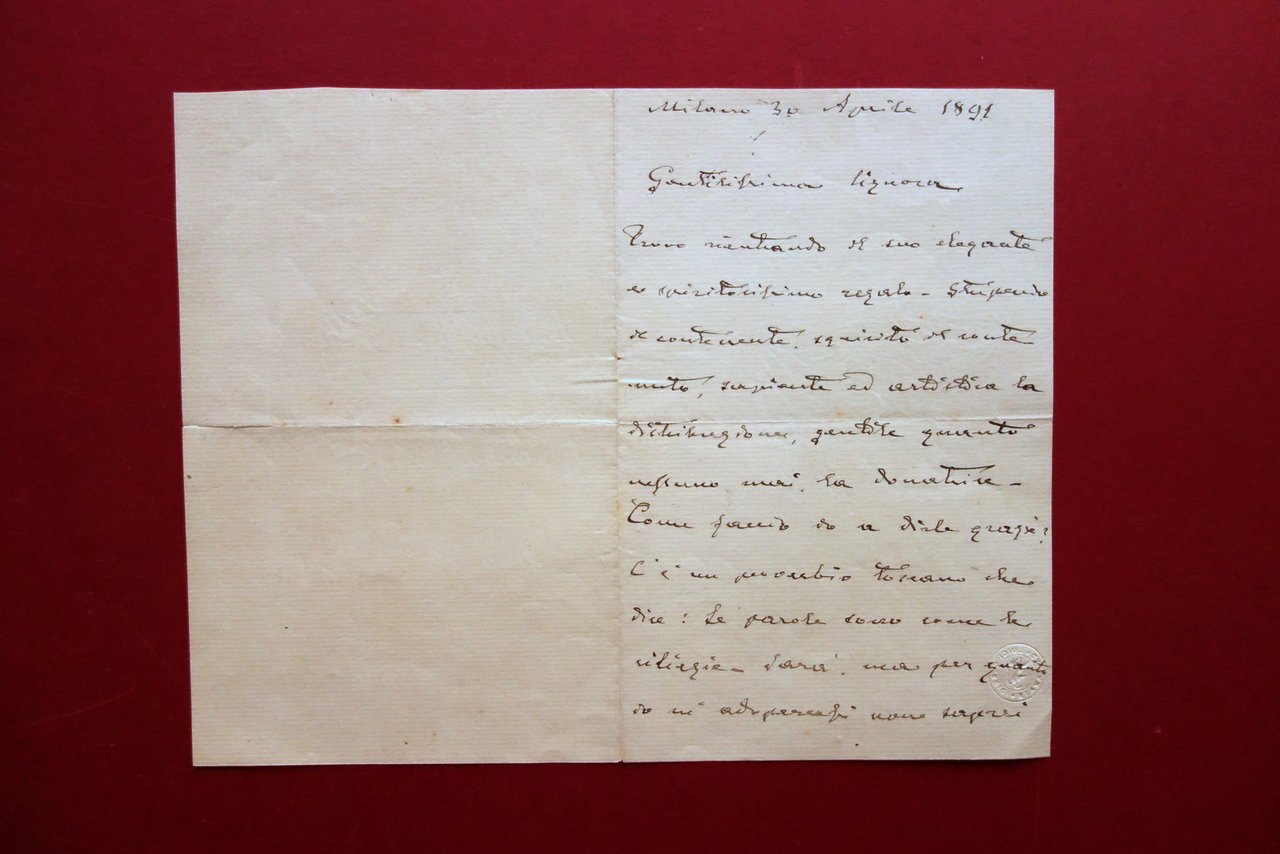 Milano 30 Aprile 1891
Gentilissima Signora
Trovo rientrando il suo elegante
e spiritosissimo regalo - Stupendo
il contenente, squisito il conte
nuto, sapiente ed artistica la
distribuzione, gentile quanto
nessuno mai, la donatrice -
Come faccio io a dirle grazie?
C'è un proverbio toscano che
dice: Le parole sono come le
ciliegie - Sarà, ma per quanto
io mi adoperassi non saprei